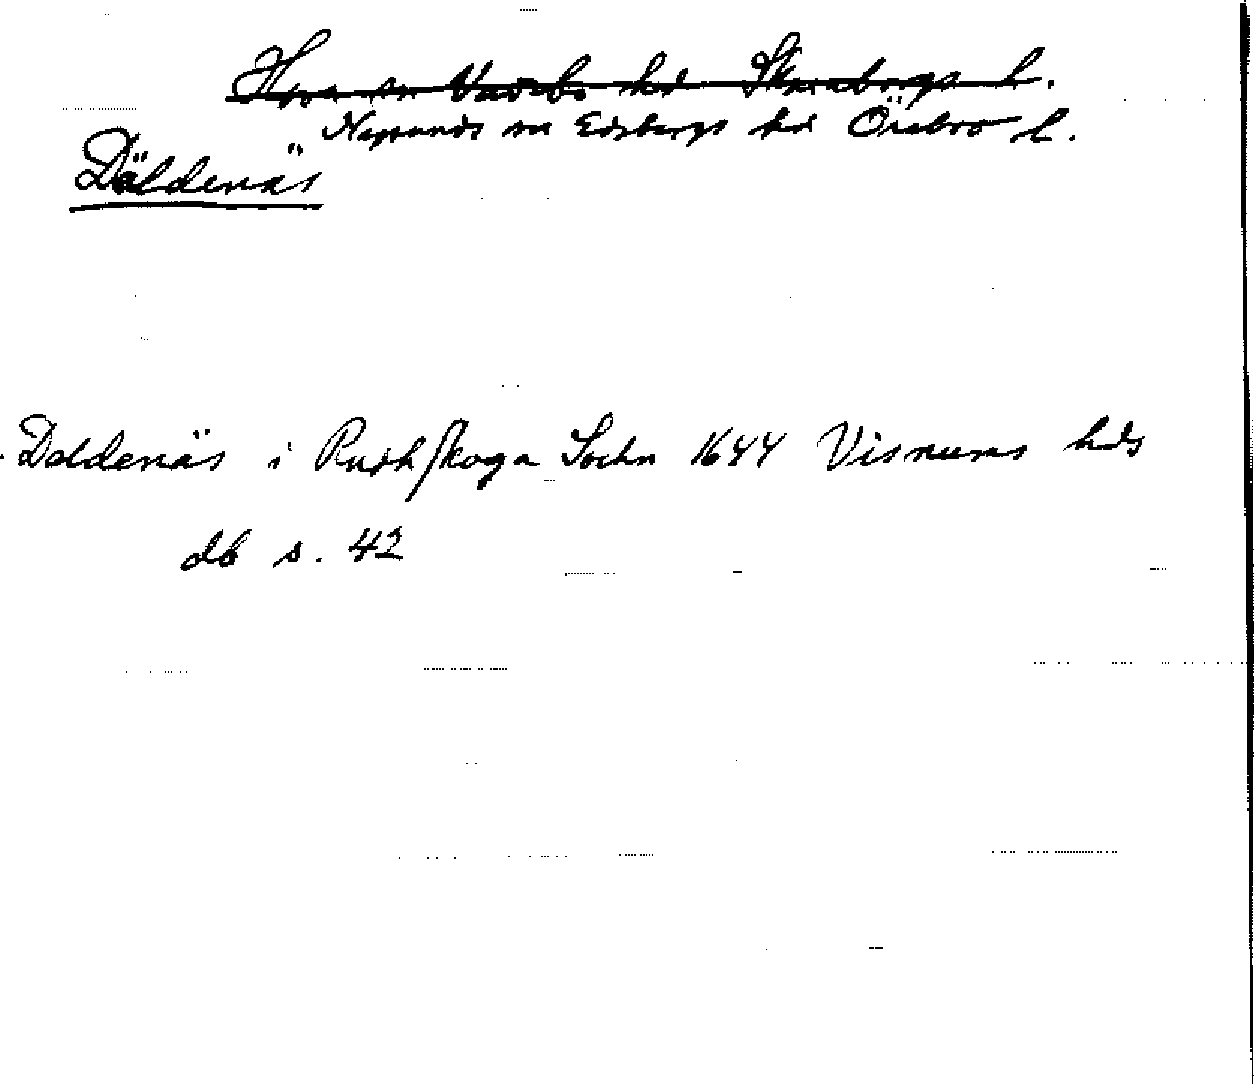 Hova sn Vadsbo hd Skaraborgs l.
Nysunds sn Edsbergs hd Örebro l.
Däldenäs
Doldenäs i Rudhskoga Sochn 1644 Visnums hds
db s. 42